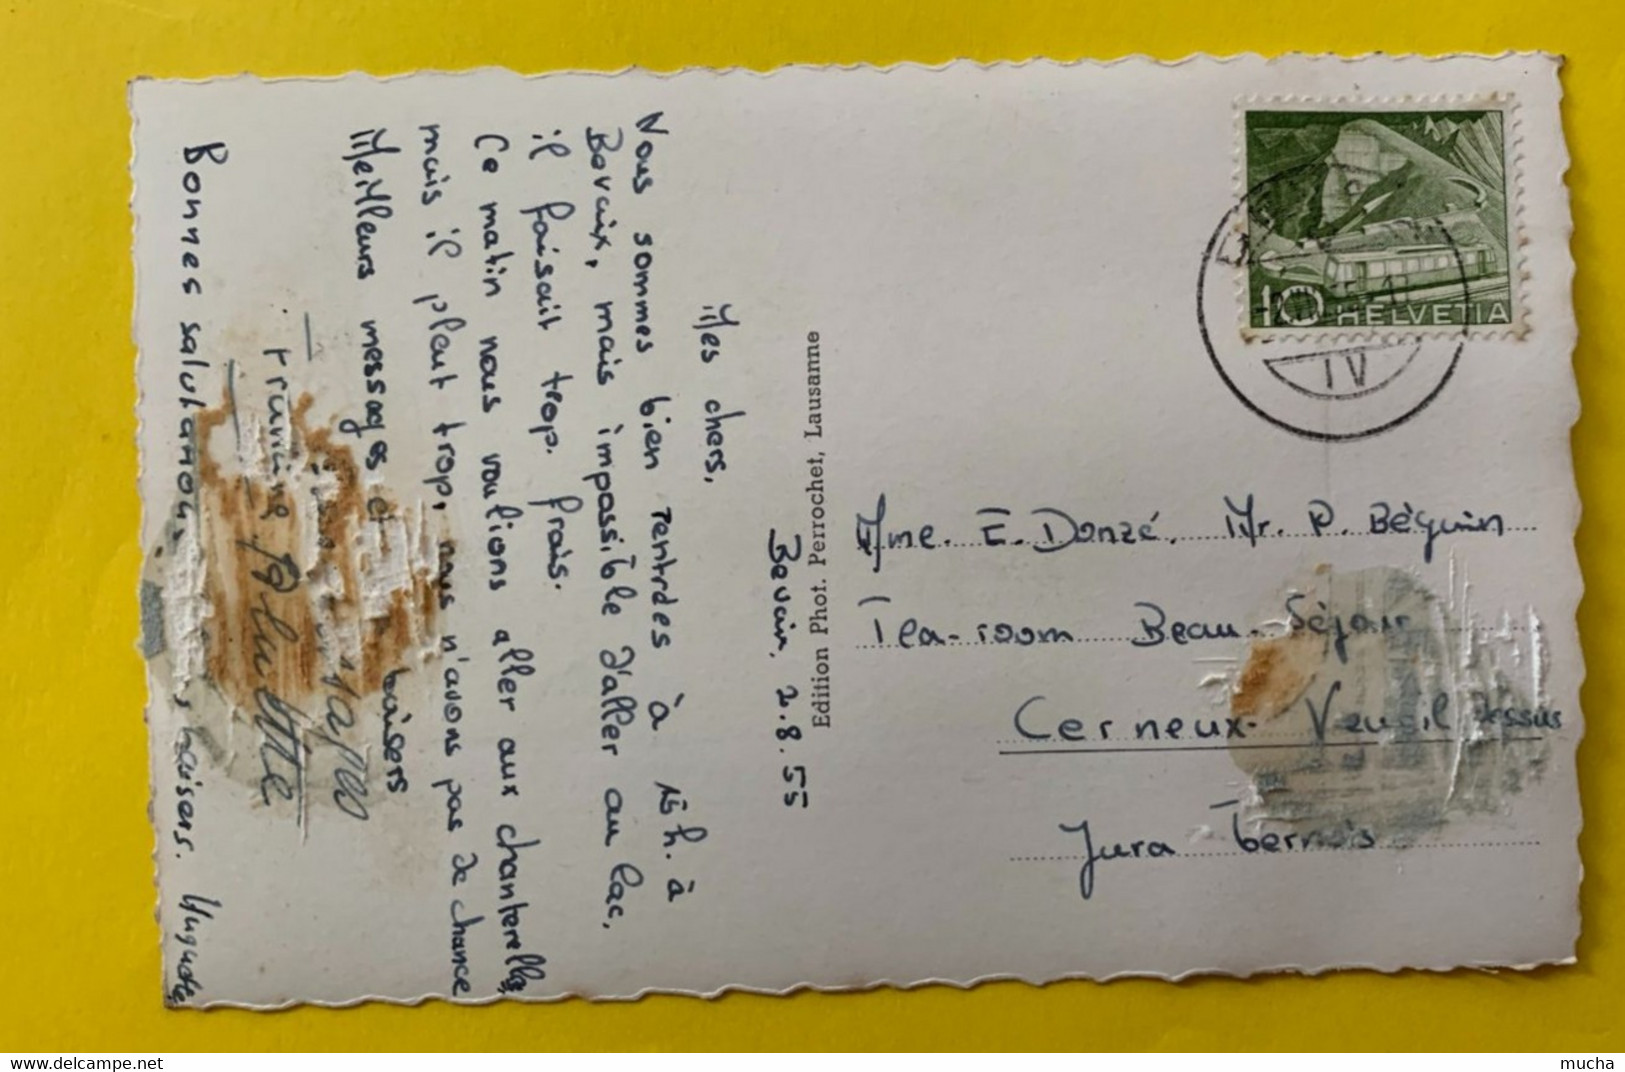 Bevaix, 2.8.55
Mes chers,
Nous sommes bien rentrées à 15h. à
Bevaix, mais impossible d'aller au lac,
il faisait trop frais.
Ce matin nous voulions aller aux chanterelles,
mais il pleut trop, nous n'avons pas de chance
Meilleurs messages et baisers
Bonnes salutations, baisers. Huguette
Edition Phot. Perrochet, Lausanne
10 HELVETIA
IV
Mme. E. Donzé. Mr. P. Béguin
Tea-room Beau-Séjour
Cerneux-Veusil dessus
Jura bernois
mucha